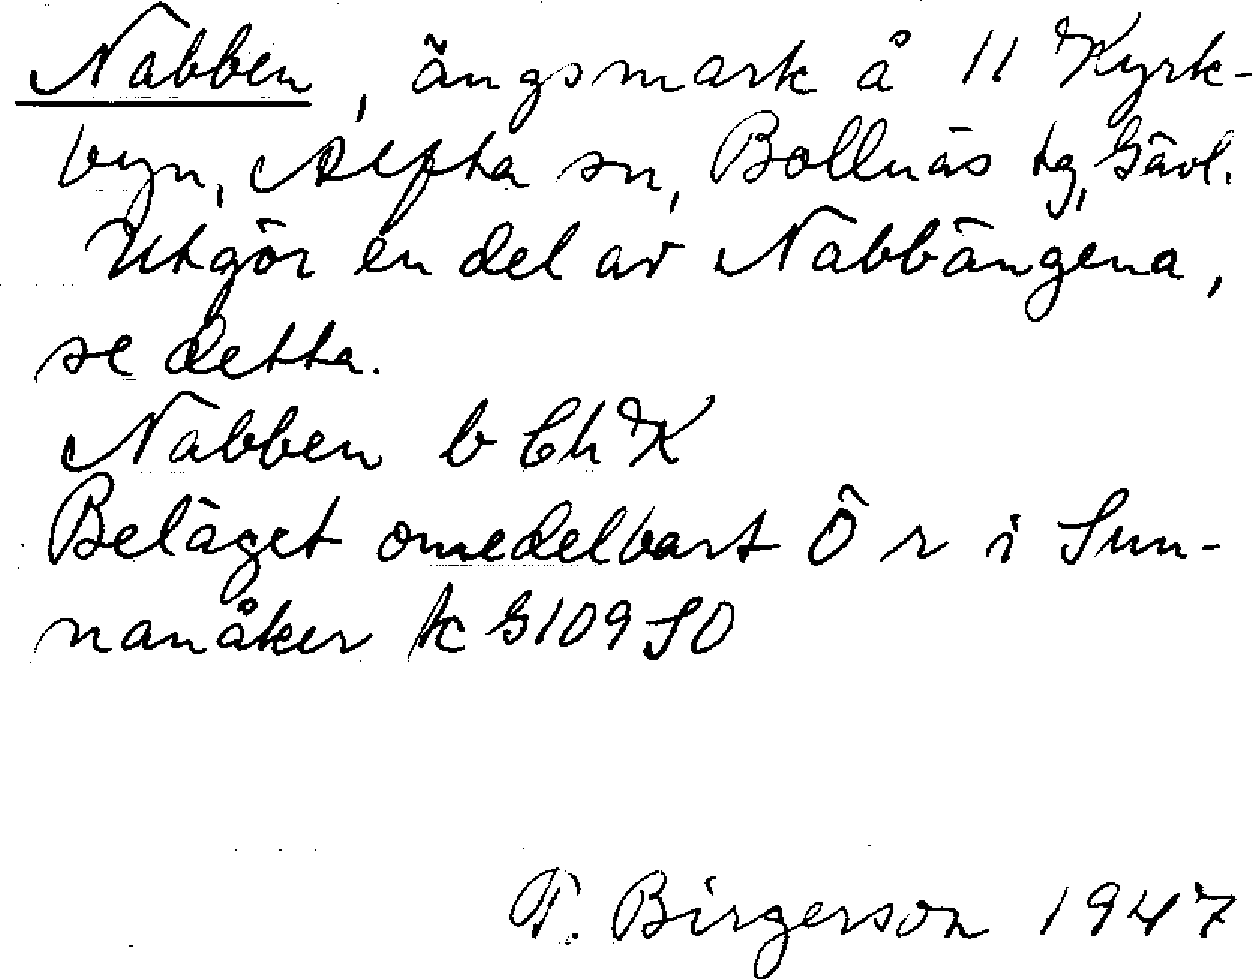 Nabben, ängsmark å 11 Kyrk-
byn, Alfta sn, Bollnäs tg, Gävl.
Utgör en del av Nabbängena,
se detta.
Nabben b Ch K
Beläget omedelbart Ö r i Sun-
nanåker k G109SO
T. Birgerson 1947